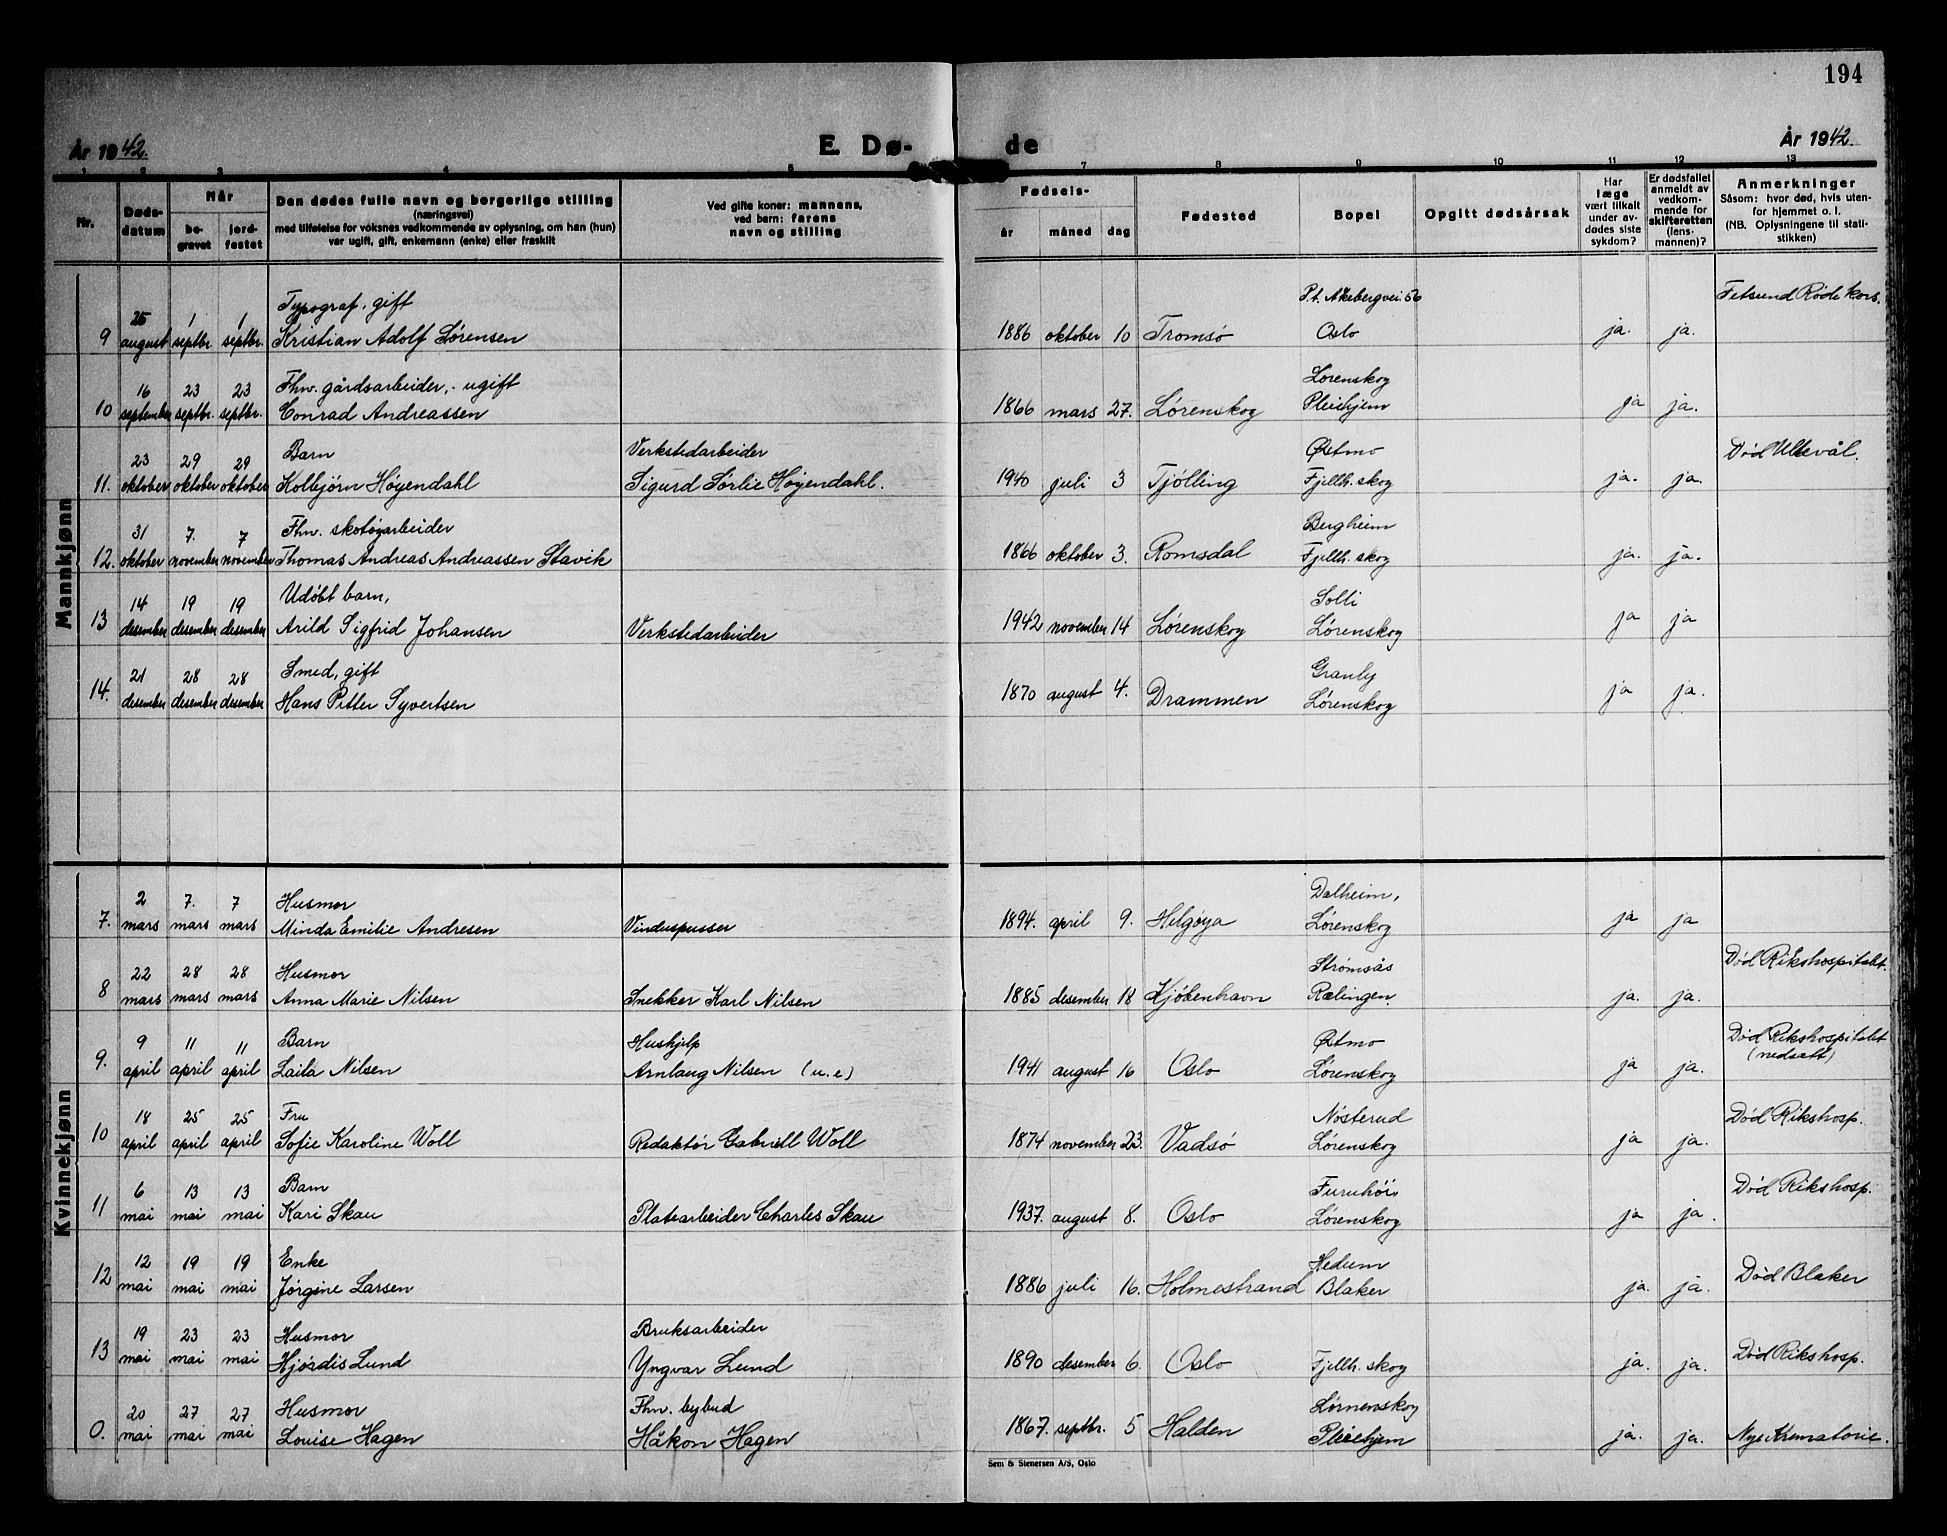 194
År 1942.
E. Dø-
de
År 1942.
1 2 3 4 5 7 8 9 10 11 12 13
Nr.
Døds-
datum
Når
be-
gravet
jord-
festet
Den dødes fulle navn og borgerlige stilling
(næringsvei)
med tilføielse for voksnes vedkommende av oplysning, om han (hun)
var ugift, gift, enkemann (enke) eller fraskilt
Ved gifte koner: mannens,
ved barn: farens
navn og stilling
Fødsels-
år måned dag
Fødested
Bopel
Opgitt dødsårsak
Har
læge
vært tilkalt
under av-
dødes siste
sykdom?
Er dødsfallet
anmeldt av
vedkom-
mende for
skifteretten
(lens-
mannen)?
Anmerkninger
Såsom: hvor død, hvis uten-
for hjemmet o. l.
(NB. Oplysningene til stati-
stikken)
Mannkjønn
25 1 1 Typograf, gift P.t. Åkebergvei 56 Fetsund Røde Kors.
9 august septbr. septbr. Kristian Adolf Sørensen 1886 oktober 10 Tromsø Oslo ja. ja.
16 23 23 Fhv. gårdsarbeider, - ugift Lørenskog
10 september septbr. septbr. Conrad Andreassen 1866 mars 27. Lørenskog Pleiehjem ja ja.
23 29 29 Barn Verkstedarbeider Østmo Død Ullevål.
11. oktober oktober oktober Kolbjørn Høyendahl Sigurd Sørlie Høyendahl. 1940 juli 3 Tjølling Fjellh. skog ja. ja.
31 7. 7 Fhv. skotøyarbeider Bergheim
12. oktober november november Thomas Andreas Andreassen Stavik 1866 oktober 3. Romsdal Fjellh. skog ja. ja.
14 19 19 Udøbt barn, Solli
13 desember desember desember Arild Sigfrid Johansen Verkstedarbeider 1942 november 14 Lørenskog Lørenskog ja ja
21 28 28 Smed, gift Granly
14. desember desember desember Hans Petter Syvertsen 1870 august 4. Drammen Lørenskog ja ja.
Kvinnekjønn
2 7. 7 Husmor Dalheim,
7. mars mars mars Minda Emilie Andresen Vinduspusser 1894. april 9. Helgøya Lørenskog ja ja
22 28 28 Husmor Strømsås Død Rikshospitalet.
8 mars mars mars Anna Marie Nilsen Snekker Karl Nilsen 1885 desember 18 Kjøbenhavn Rælingen. ja. ja.
9 11 11 Barn Hushjelp Østmo Død Rikshospitalet
(nedsatt)
9. april april april Laila Nilsen Arnlaug Nilsen (u.e) 1941 august 16 Oslo Lørenskog ja ja.
18 25 25 Fru Nøsterud Død Rikshosp.
10 april april april Sofie Karoline Woll Redaktør Gabriell Woll 1874 november 23. Vadsø Lørenskog ja ja.
6 13 13 Barn Furuhøi Død Rikshosp.
11 mai mai mai Kari Skau Platearbeider Charles Skau 1937. august 8. Oslo Lørenskog ja ja.
12 19 19 Enke Hedum Død Blaker
12 mai mai mai Jørgine Larsen 1886 juli 16. Holmestrand Blaker ja. ja.
19 23 23 Husmor Bruksarbeider Død Rikshosp.
13 mai mai mai Hjørdis Lund Yngvar Lund 1890 desember 6. Oslo Fjellh. skog ja. ja.
20 27 27 Husmor Fhv. bybud Lørnenskog
0. mai mai mai Louise Hagen Håkon Hagen 1867. septbr. 5 Halden Pleiehjem ja. ja. Nye Krematorie.
Sem & Stenersen A/S, Oslo